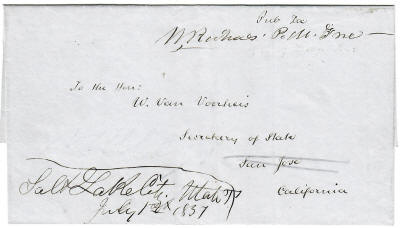 Pub Doc
P.M. Free
To the Hon:
W. Van Voorheis
Secretary of State
San Jose
California
Salt Lake City Utah T
July 1st 1851